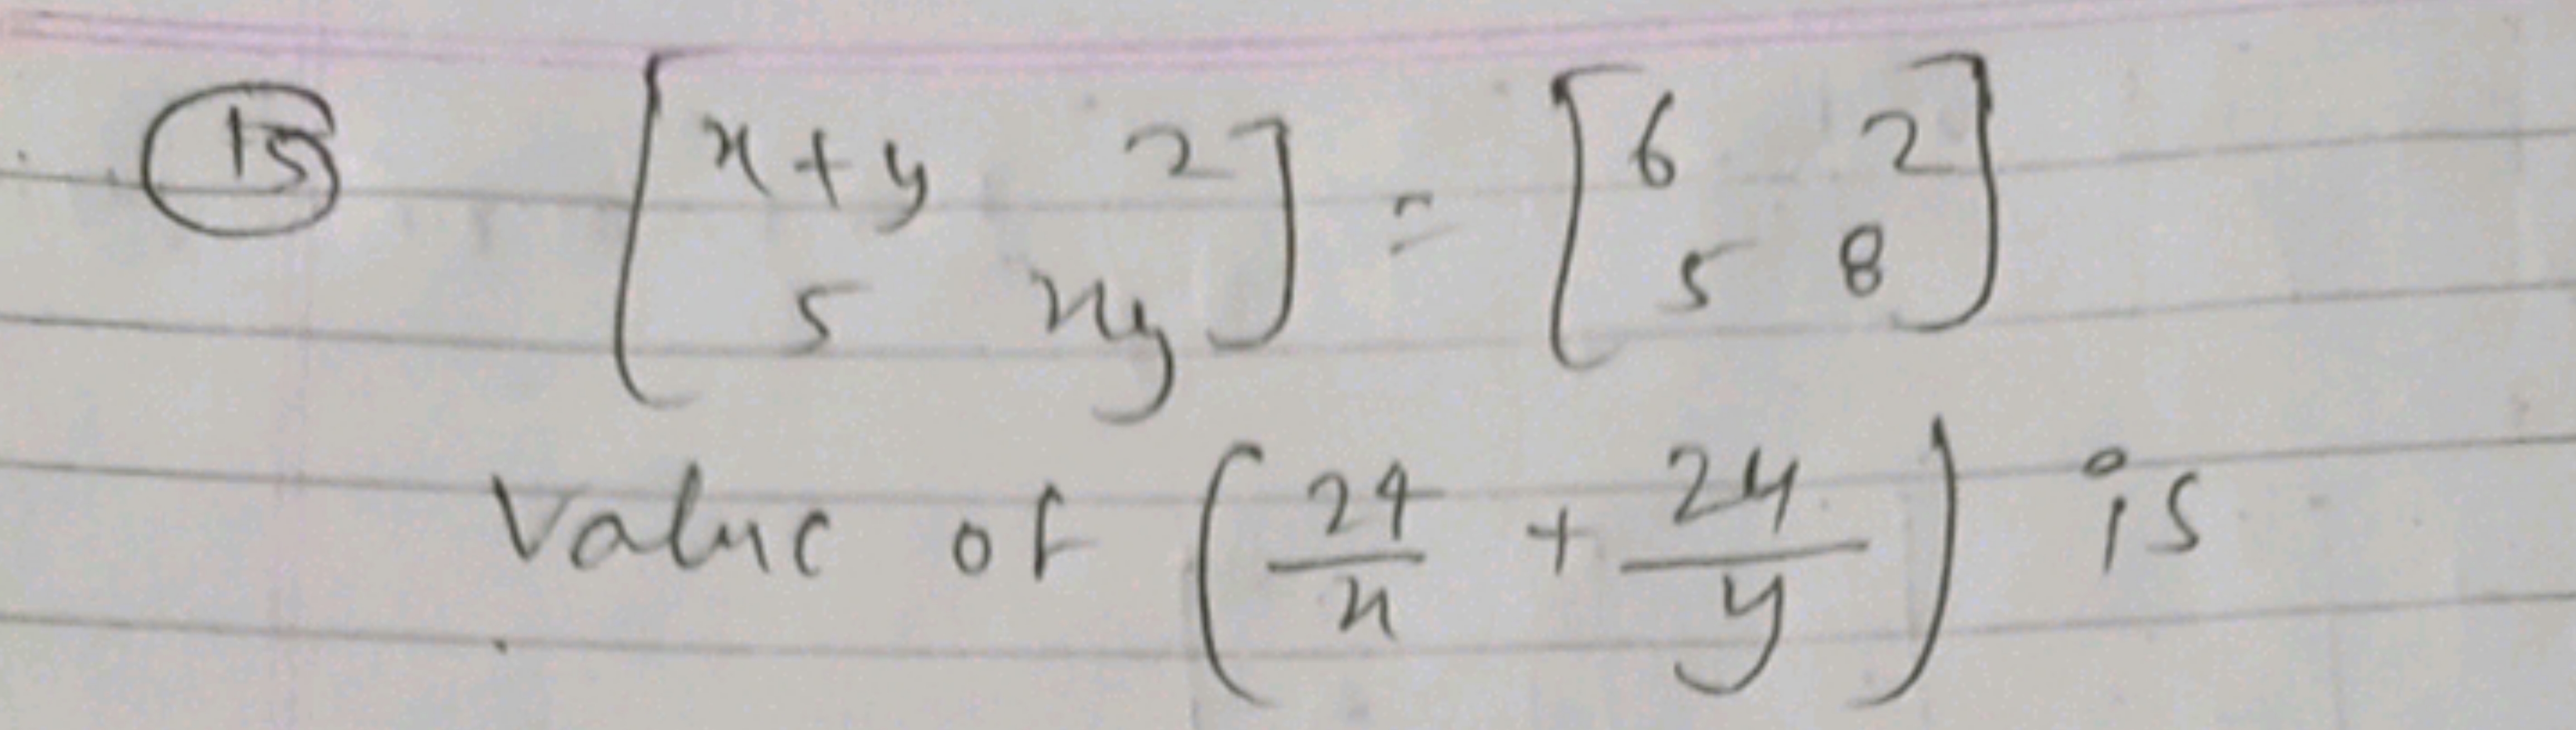 15 [x+y 2] = [6 2]
[5 xy] [5 8]
Value of (24/x + 24/y) is